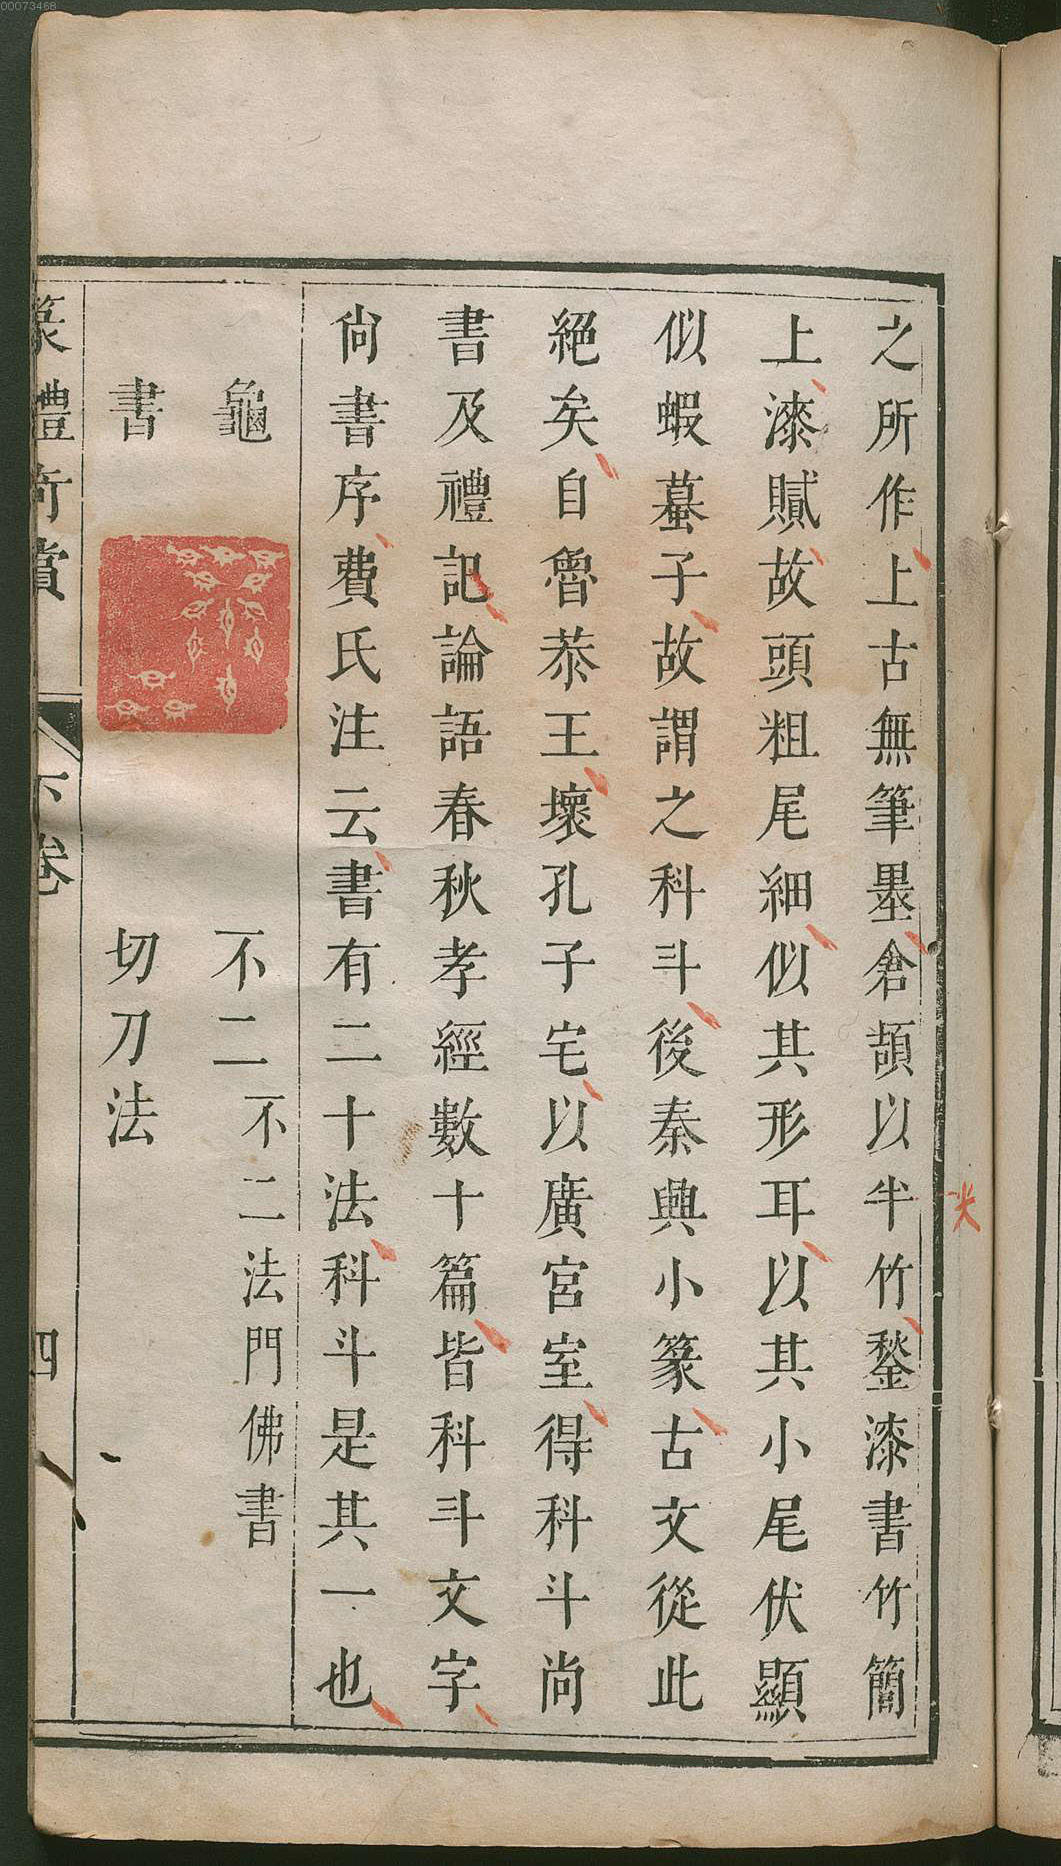 00073468
之所作上古無筆墨倉頡以半竹鍫漆書竹簡
上漆膩故頭粗尾細似其形耳以其小尾伏顯
似蝦蟇子故謂之科斗後秦興小篆古文從此
絕矣自魯恭王壞孔子宅以廣宮室得科斗尚
書及禮記論語春秋孝經數十篇皆科斗文字
尚書序費氏注云書有二十法科斗是其一也
龜
書
不二
不二法門佛書
切刀法
篆體奇賞
下卷
四
尖